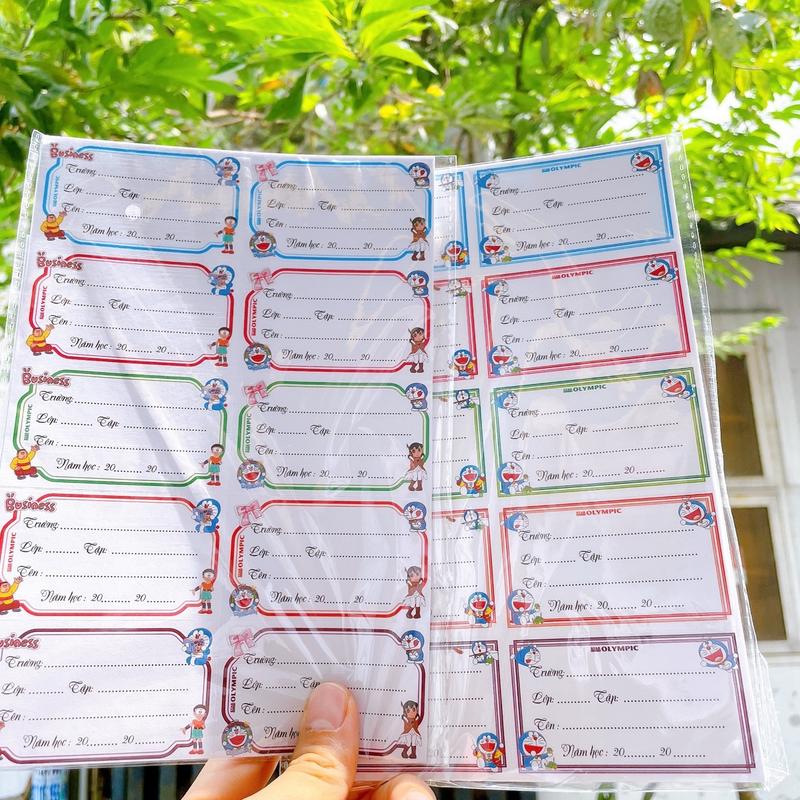 Business
Trường..........
Lớp:.......... Tập:..........
Tên :..........
Năm học : 20........ 20........
OLYMPIC
Trường..........
Lớp:.......... Tập:..........
Tên :..........
Năm học : 20........ 20........
OLYMPIC
OLYMPIC
Trường..........
Lớp:.......... Tập:..........
Tên :..........
Năm học : 20........ 20........
Business
Trường..........
Lớp:.......... Tập:..........
Tên :..........
Năm học : 20........ 20........
OLYMPIC
Trường..........
Lớp:.......... Tập:..........
Tên :..........
Năm học : 20........ 20........
OLYMPIC
OLYMPIC
Trường..........
Lớp:.......... Tập:..........
Tên :..........
Năm học : 20........ 20........
Business
Trường..........
Lớp:.......... Tập:..........
Tên :..........
Năm học : 20........ 20........
OLYMPIC
Trường..........
Lớp:.......... Tập:..........
Tên :..........
Năm học : 20........ 20........
OLYMPIC
OLYMPIC
Trường..........
Lớp:.......... Tập:..........
Tên :..........
Năm học : 20........ 20........
Business
Trường..........
Lớp:.......... Tập:..........
Tên :..........
Năm học : 20........ 20........
OLYMPIC
Trường..........
Lớp:.......... Tập:..........
Tên :..........
Năm học : 20........ 20........
OLYMPIC
OLYMPIC
Trường..........
Lớp:.......... Tập:..........
Tên :..........
Năm học : 20........ 20........
Business
Trường..........
Lớp:.......... Tập:..........
Tên :..........
Năm học : 20........ 20........
Trường..........
Lớp:.......... Tập:..........
Tên :..........
Năm học : 20........ 20........
OLYMPIC
OLYMPIC
Trường..........
Lớp:.......... Tập:..........
Tên :..........
Năm học : 20........ 20........